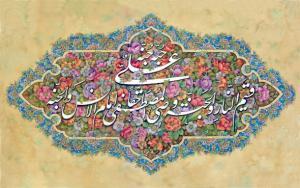 علی حبه جنة
قسیم النار و الجنة وصی المصطفی حقا امام الانس و الجنة